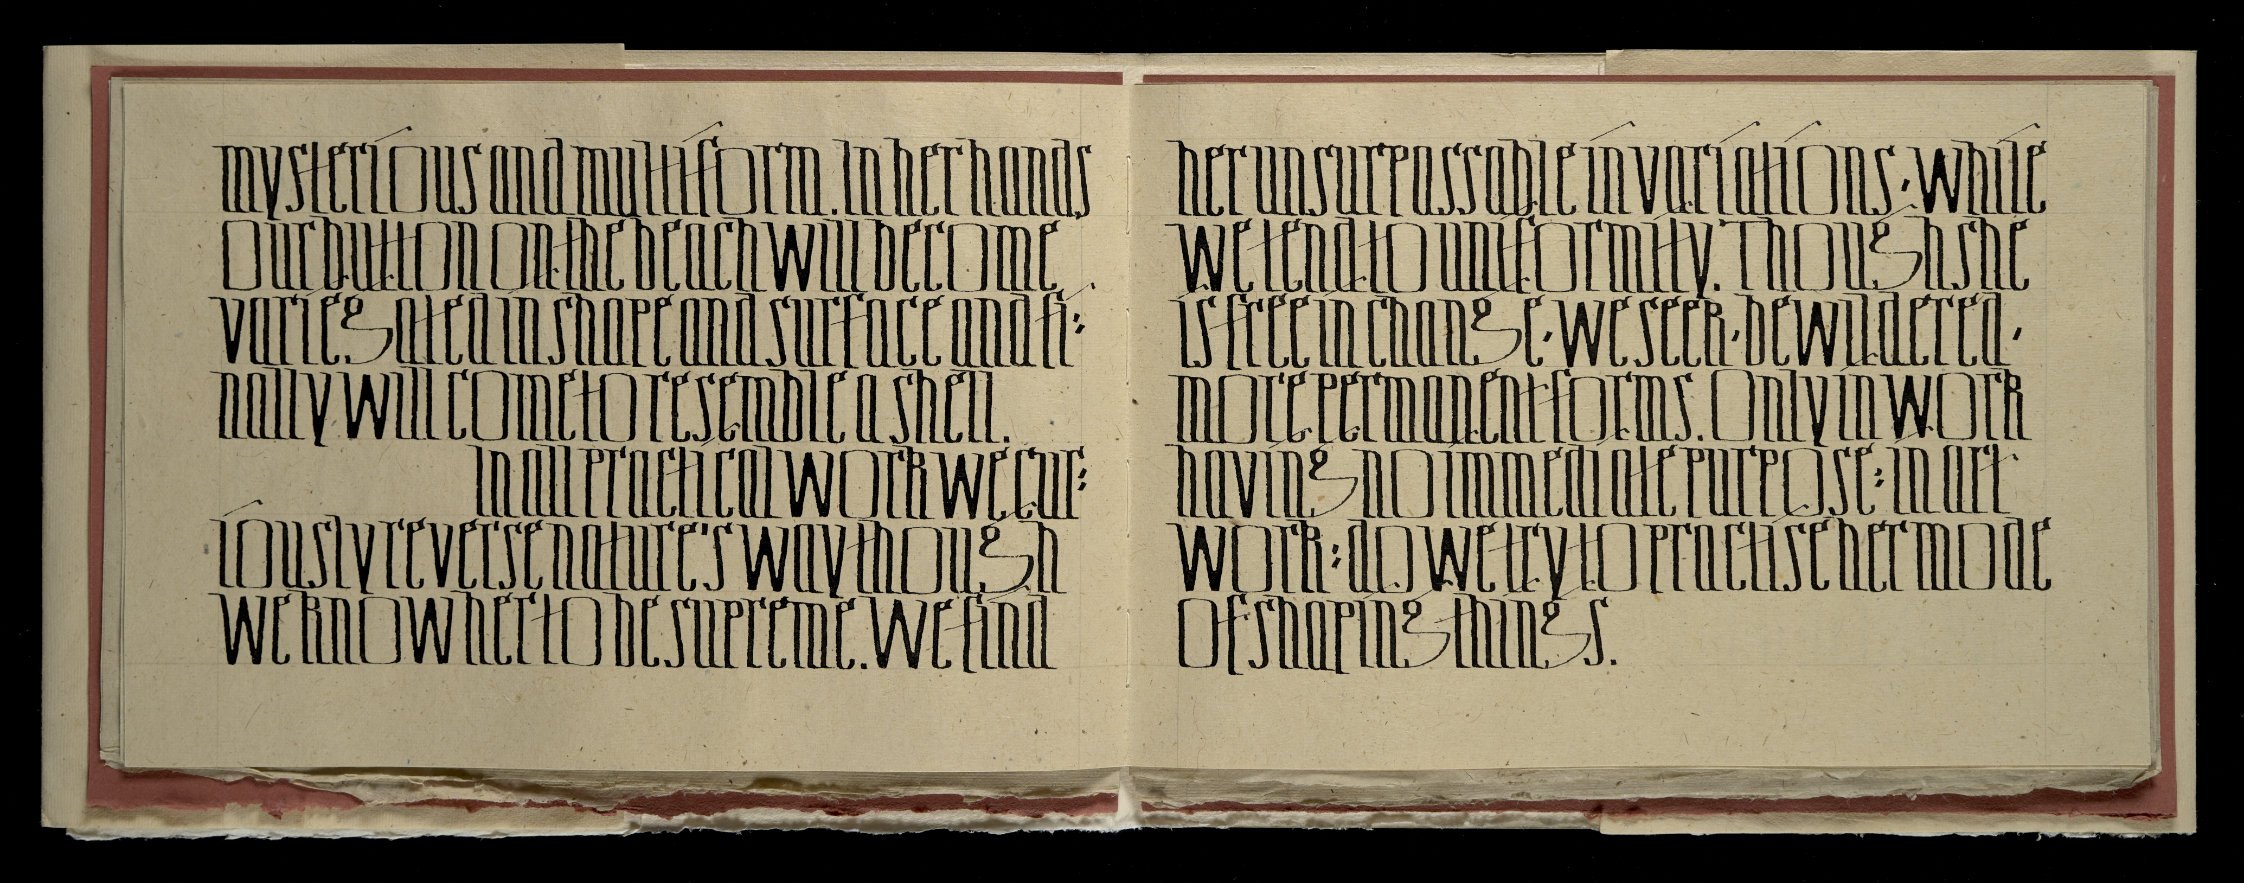 mysterious and multiform. In her hands
our button on the beach will become
variegated in shape and surface and fi:
nally will come to resemble a shell.
In all practical work we cur:
iously reverse nature's way though
we know her to be supreme. We find
her unsurpassable in variations; while
we tend to uniformity. Though she
is free in change, we seek, bewildered,
more permanent forms. Only in work
having no immediate purpose; in art
work; do we try to practise her mode
of shaping things.